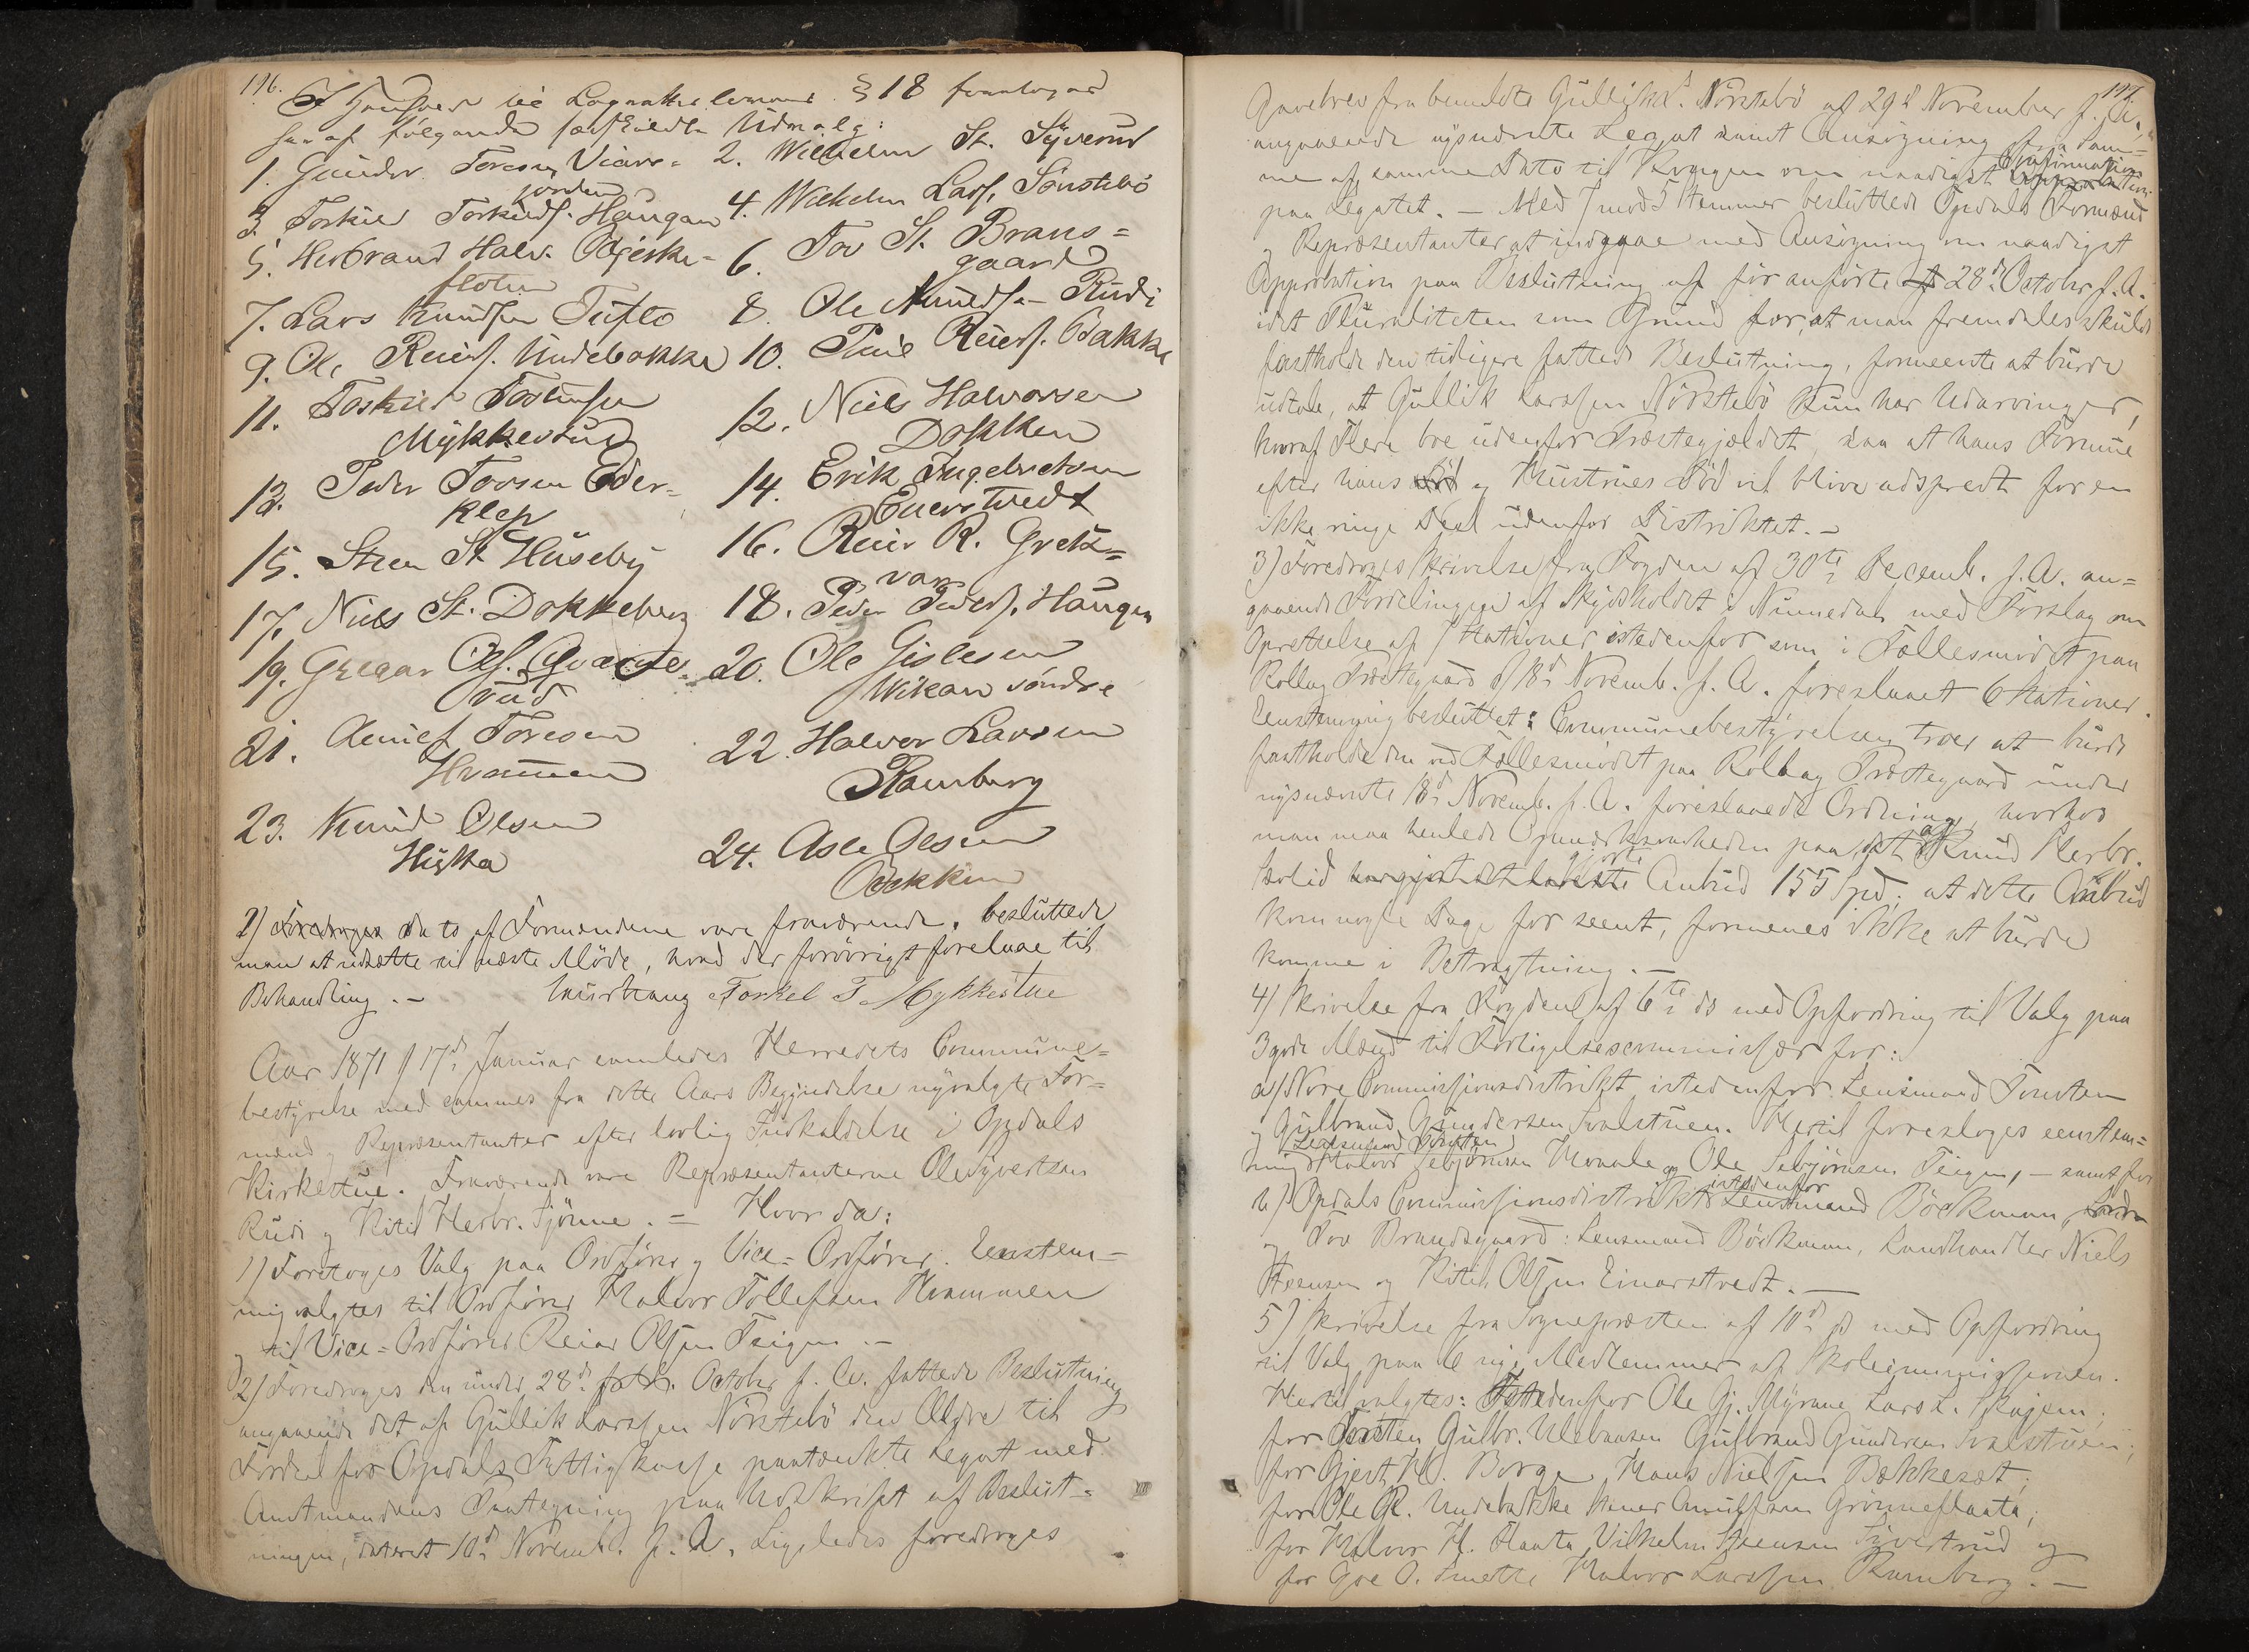 116.
I Henhold til Lagrettelovens § 18 foretoges
følgende særskildte Udvalg:
1. Gunder Toresen Vier= 2. Wilhelm St. Syverud
jorden
3. Torkild Torkilds. Haugen 4. Wilhelm Larss. Sönstebö
5. Herbrand Halv. Skjeske= 6. Tov St. Brans=
floten gaard
7. Lars Knudsen Tufto 8. Ole Knuds. Rudi
9. Ole Reiers. Undebakke 10. Paul Reiers. Bakke
11. Torkild Torkildsen 12. Niels Halvorsen
Mykkestue Dokken
13. Peder Tovsen Eder= 14. Erik Ingebretsen
klep Enerstvedt
15. Steen St. Huseby 16. Reier R. Grets=
van
17. Niels St. Dokkeberg 18. Peder Peders. Haugen
19. Gregar Ols. Qvarte= 20. Ole Gislesen
rud Wikan söndre
21. Toresen 22. Halvor Larsen
Hvammen Ramberg
23. Knud Olsen 24. Asle Olsen
Hiska Bekken
2) Foredroges da to af Formændene vare fraværende, besluttede
man at udsætte til næste Möde, hvad der forövrigt forelaae til
Behandling. – Torkel T Mykkestue
Aar 1871 d 17d Januar samledes Herredets Commune=
bestyrelse med sammes fra dette Aars Begyndelse nyvalgte For=
mænd og Repræsentanter efter lovlig Indkaldelse i Opdals
Kirkestue. Fraværende vare Repræsentanterne Ole Syvertsen
Rudi og Kitil Herbr. Sjönne. = Hvor da:
1) Foretoges Valg paa Ordförer og Vice=Ordförer. Eenstem=
mig valgtes til Ordförer Halvor Tollefsen Hvammen
og til Vice=Ordförer Reier Olsen Teigen. –
2) Foredroges den under 28d Octobr f. A. fattede Beslutning
angaaende det af Gullik Larssen Nörstebö den Ældre til
Fordel for Opdals Fattigkasse paatænkte Legat med
Amtmandens Paategning paa Udskrift af Beslut=
ningen, dateret 10d Novemb. f. A. Ligeledes foredroges
117.
Gavebrev fra bemeldte Gullik L. Nörstebö af 29d November f. A.,
angaaende nysnævnte Legat samt Ansögning fra Sam=
me af samme Dato til Kongen om naadigst Confirmation
paa Legatet. – Med 7 mod 5 Stemmer besluttede Opdals Formænd
og Repræsentanter at indgaae med Ansögning om naadigst
Approbation paa Beslutning af för anförte 28d Octobr f. A.
idet Pluraliteten som Grund for, at man fremdeles skulde
fastholde den tidligere fattede Beslutning, formeente at burde
udtale, at Gullik Larssen Nörstebö kun har Udarvinger,
hvoraf Flere boe udenfor Præstegjeldet, saa at hans Formue
efter hans og Hustrues Död vil blive adspredt for en
ikke ringe Deel udenfor Distriktet. –
3) Foredroges Skrivelse fra Fogden af 30te Decemb. f. A. an=
gaaende Fordelingen af Skydsholdet i Nummedal med Forslag om
Oprettelse af 7 Stationer istedenfor som i Fællesmödet paa
Rollag Præstegaard d 18d Novemb. f. A. foreslaaet 6 Stationer.
Eenstemmig besluttet: Communebestyrelsen troer at burde
fastholde den ved Fællesmödet paa Rollag Præstegaard under
nysnævnte 18d Novemb. f. A. foreslaaede Ordning, hvorhos
man maa henlede Opmærksomheden paa det af Knud Herbr.
Tævlid gjorte Anbud 155 Spd; at dette Anbud
kom nogle Dage for seent, formenes ikke at burde
komme i Betragtning. –
4) Skrivelse fra Fogden af 6te ds med Opfordring til Valg paa
3 gode Mænd til Forligelsescommissær for:
a) Nore Commissionsdistrikt istedenfor Lensmand Tovsten
og Gulbrand Gundersen Svalestuen. Hertil foresloges eenstem=
Lensmand Tovsten
mig Halvor Sebjörnsen Hvaale og Ole Sebjörnsen Teigen, – samt for
b) Opdals Commissionsdistrikt istedenfor Lensmand Böckman
og Tov Brandsgaard: Lensmand Böckman, Landhandler Niels
Steensen og Kitil Olsen Einarstvedt. –
5) Skrivelse fra Sognepræsten af 10d ds med Opfordring
til Valg paa 6 nye Medlemmer af Skolecommissionen.
Hertil valgtes: Istedenfor Ole Gj. Myrane Lars L. Skajem;
for Torsten Gulbr. Ulebaasen Gulbrand Gundersen Svalestuen;
for Gjert H. Borge Hans Nielsen Bækkesæt;
for Ole R. Undebakke Grönneflaata;
for Halvor H. Flaata Vilhelm Steensen Syvertrud og
for Goe O. Smette Halvor Larssen Ramberg. –